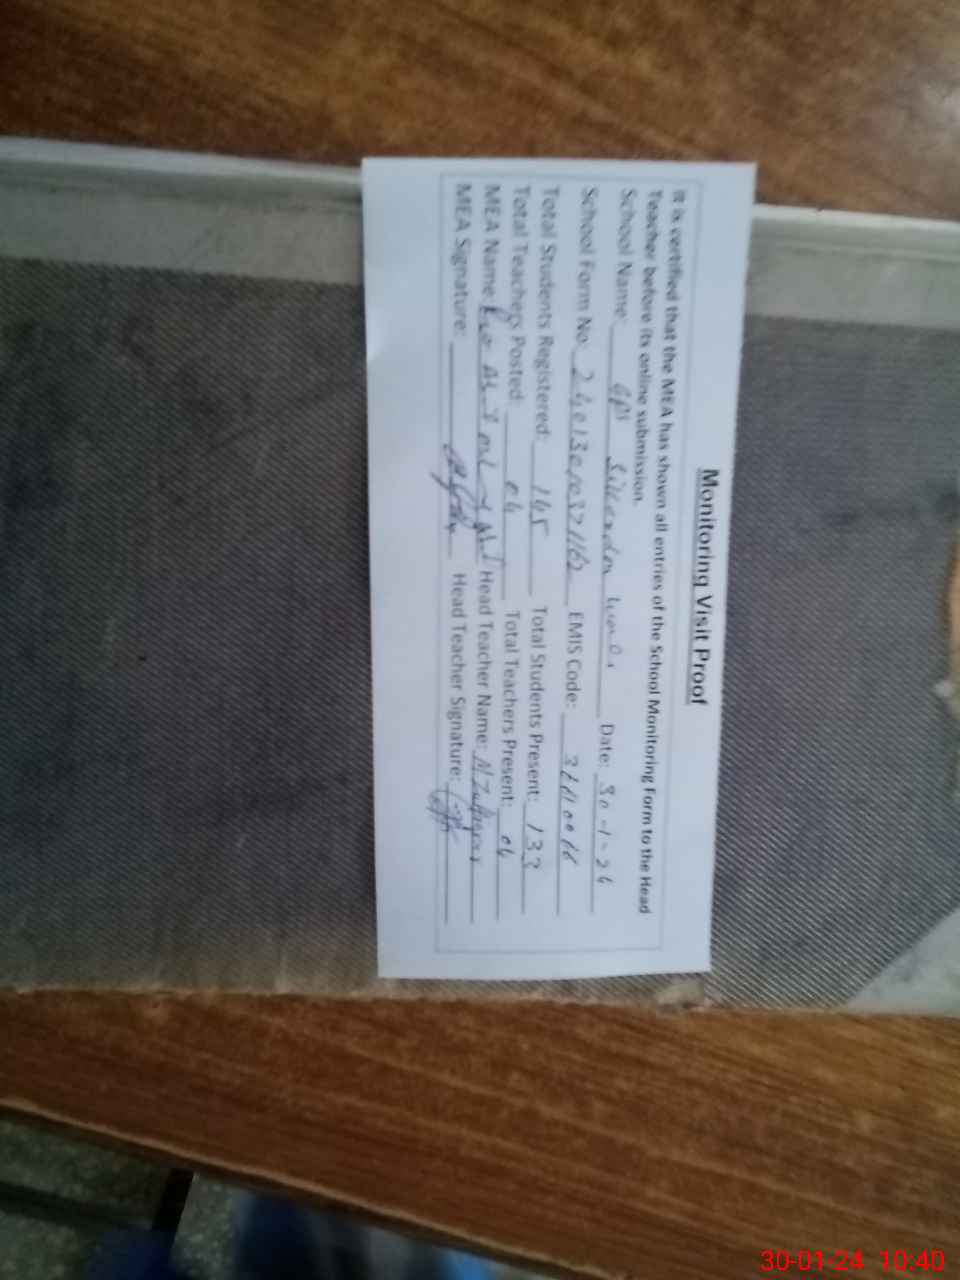 Monitoring Visit Proof
It is certified that the MEA has shown all entries of the School Monitoring Form to the Head
Teacher before its online submission.
School Name: GPS Sikandar Date: 30-1-24
School Form No: EMIS Code:
Total Students Registered: 145 Total Students Present: 133
Total Teachers Posted: 04 Total Teachers Present: 04
MEA Name: Head Teacher Name:
MEA Signature: Head Teacher Signature:
30-01-24 10:40